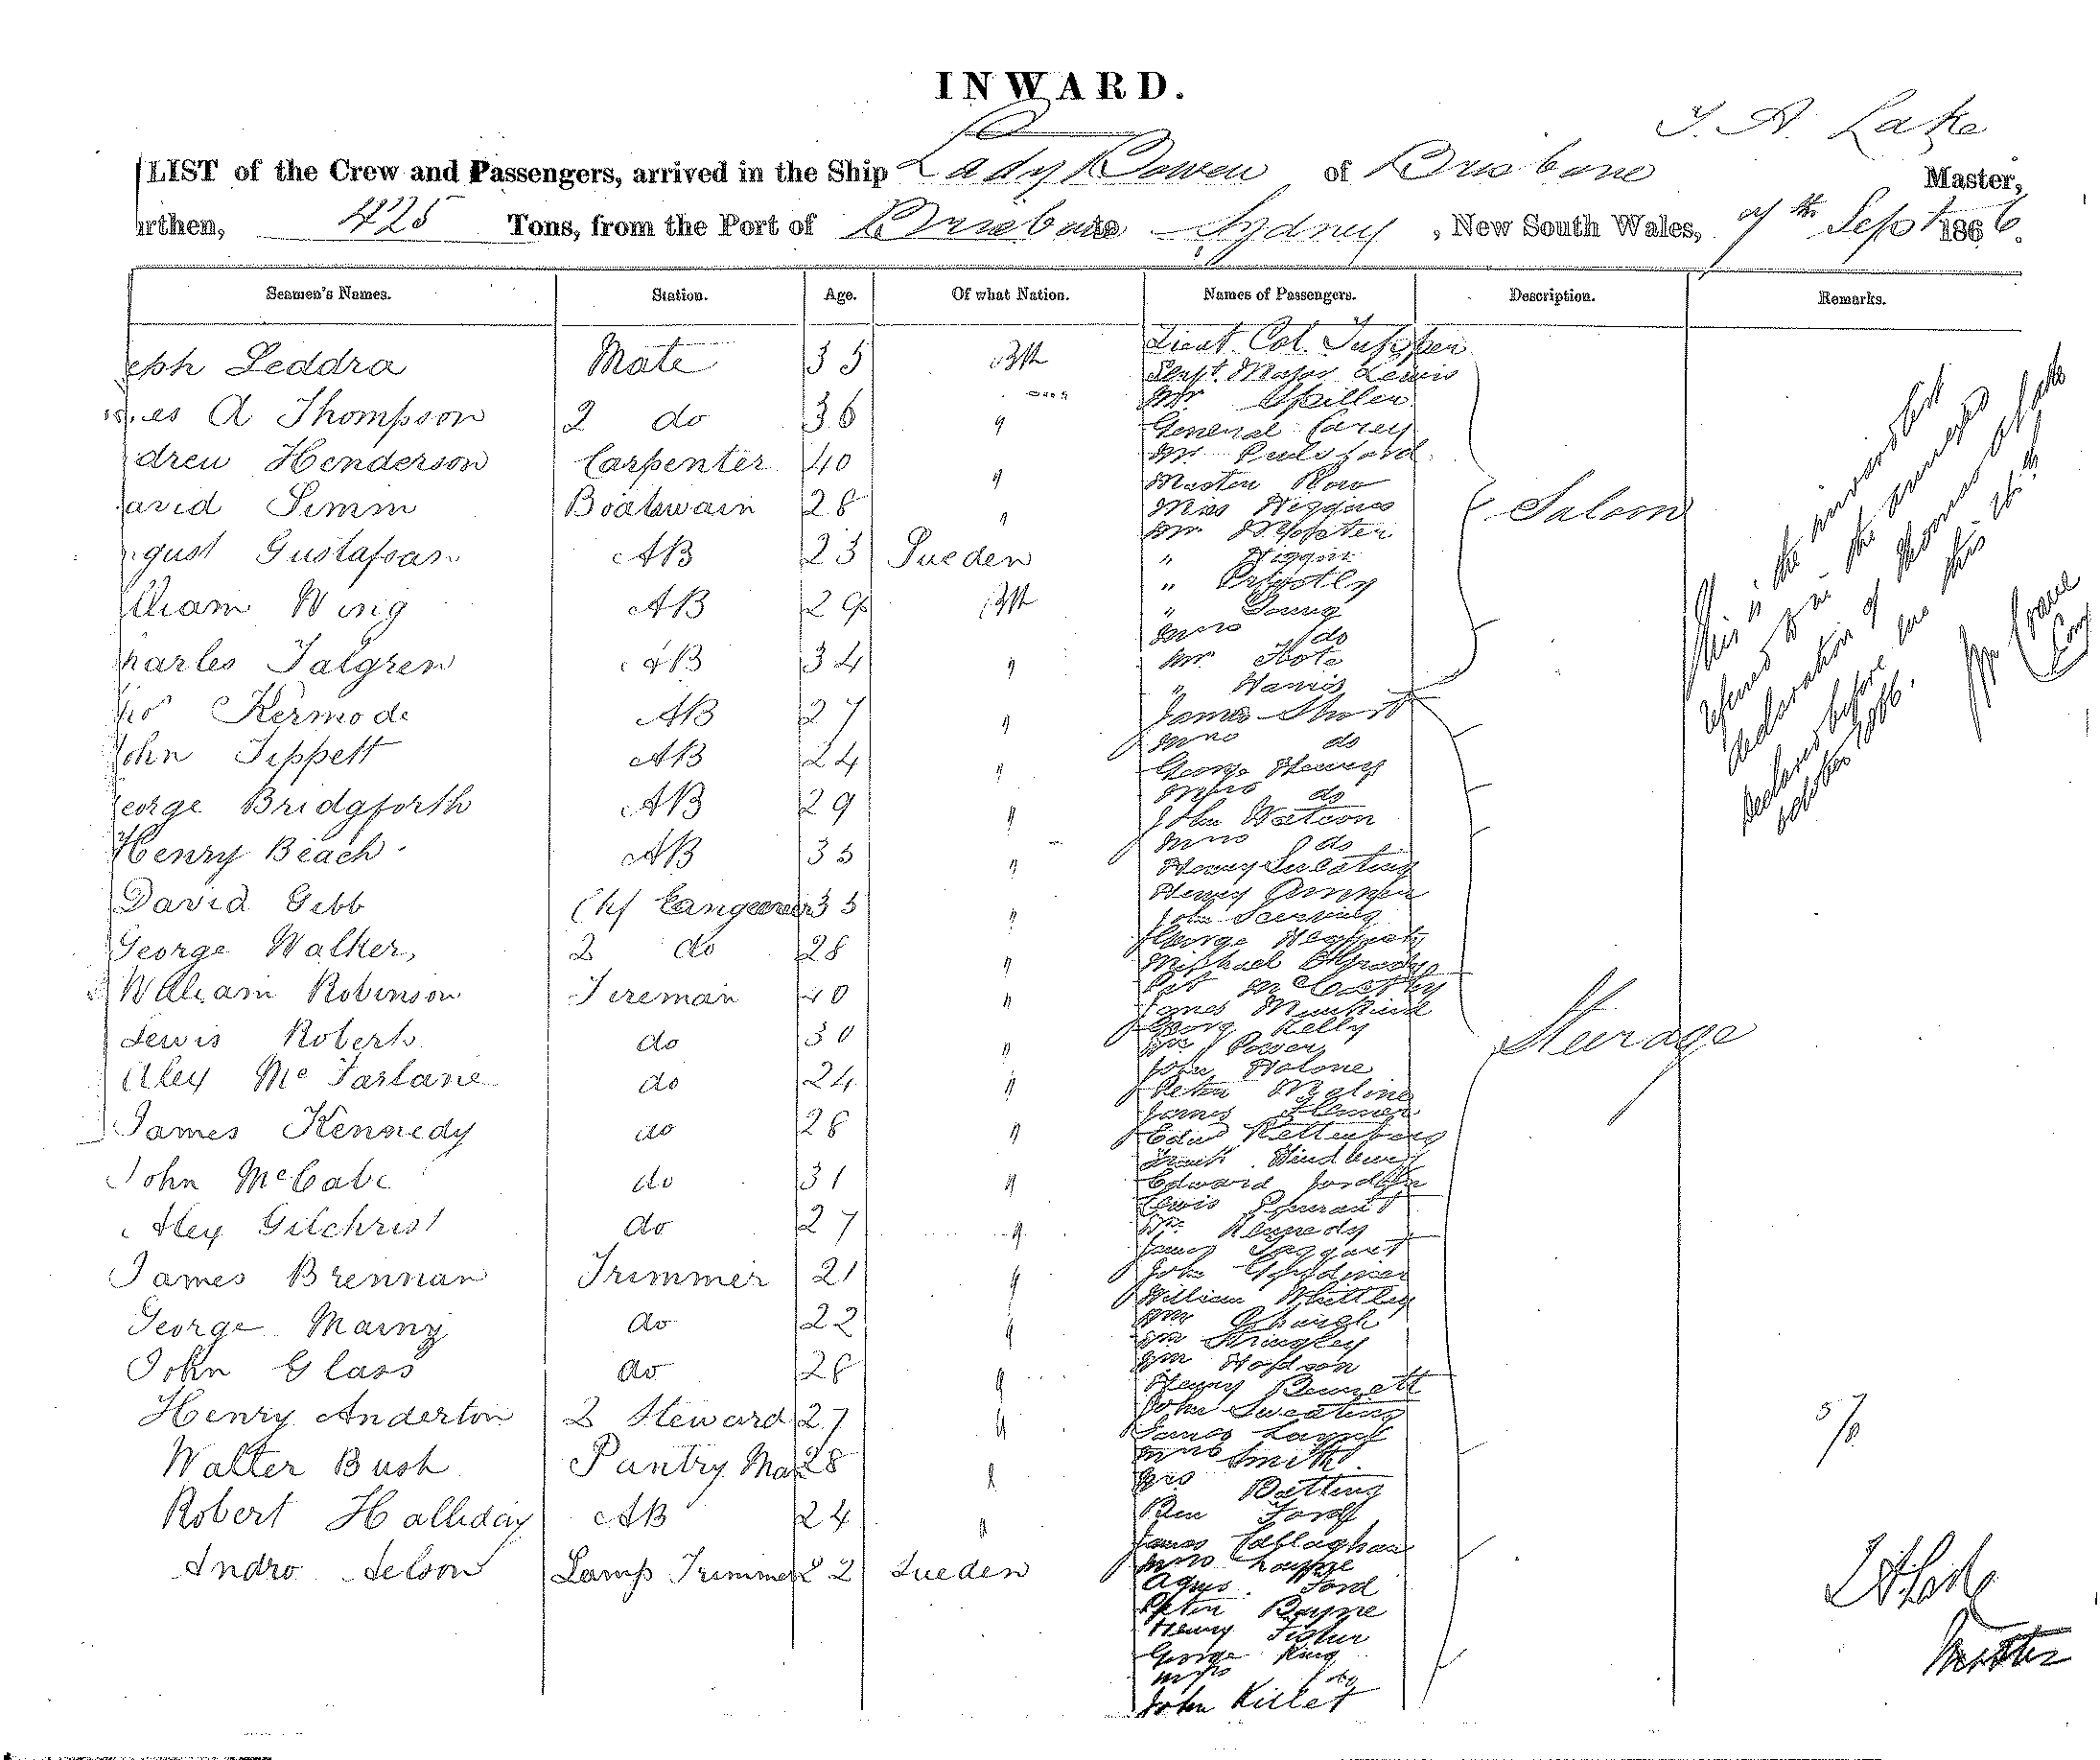 INWARD.
T. A. Lake
LIST of the Crew and Passengers, arrived in the Ship Lady Bowen of Brisbane Master,
rthen, 425 Tons, from the Port of Brisbane to Sydney, New South Wales, 9th Sept 1866.
Seamen's Names. Station. Age. Of what Nation. Names of Passengers. Description. Remarks.
eph Leddra Mate 35 Bth
es A Thompson 2 do 36 "
drew Henderson Carpenter 40 "
avid Simm Boatswain 28 "
gust Gustafson AB 23 Sueden
lliam Wing AB 29 Bth
harles Talgren AB 34 "
Kermode AB 27 "
John Tippett AB 24 "
eorge Bridgforth AB 29 "
Henry Beach AB 35 "
David Gibb Chf 35 "
George Walker, 2 do 28 "
William Robinson Fireman 40 "
Lewis Roberts do 30 "
Alex McFarlane do 24 "
James Kennedy do 28 "
John McCabe do 31 "
Alex Gilchrist do 27 "
James Brennan Trimmer 21 "
George Marny do 22 "
John Glass do 28 "
Henry Anderton 2 Steward 27 "
Walter Bush Pantry Man 28 "
Robert Halliday AB 24 "
Andro Lamp Trimmer 22 Sueden
Lieut. Col. Tupper
Sergt. Major Lewis
Mr Spiller
General Carey
Mr Pulsford
Master Row
Miss Higgins
Mr
" Higgins
" Priestly
" Young
Mrs do
Mr
" Harris
Saloon
James Short
Mrs do
George Henry
Mrs do
John Watson
Mrs do
Henry Sweating
Henry
John
George
Michael OGrady
Pat McCarthy
James
George Kelly
Wm Power
John Malone
Peter Malone
James
Edwd
Edward
Lewis
Wm Kennedy
James Taggart
John
William Whittley
Wm
Wm Stringley
Wm
Henry Bennett
John Sweating
James
Mrs Smith
Mrs Batting
Ben Ford
James Callaghan
Mrs
Agnes Ford
Peter Bayne
Henry Fisher
George King
Mrs do
John Killet
Steerage
This is the inward list
referred to in the annexed
declaration of Thomas A Lake
declared before me this 10th
1866.
5/8
T A Lake
Master